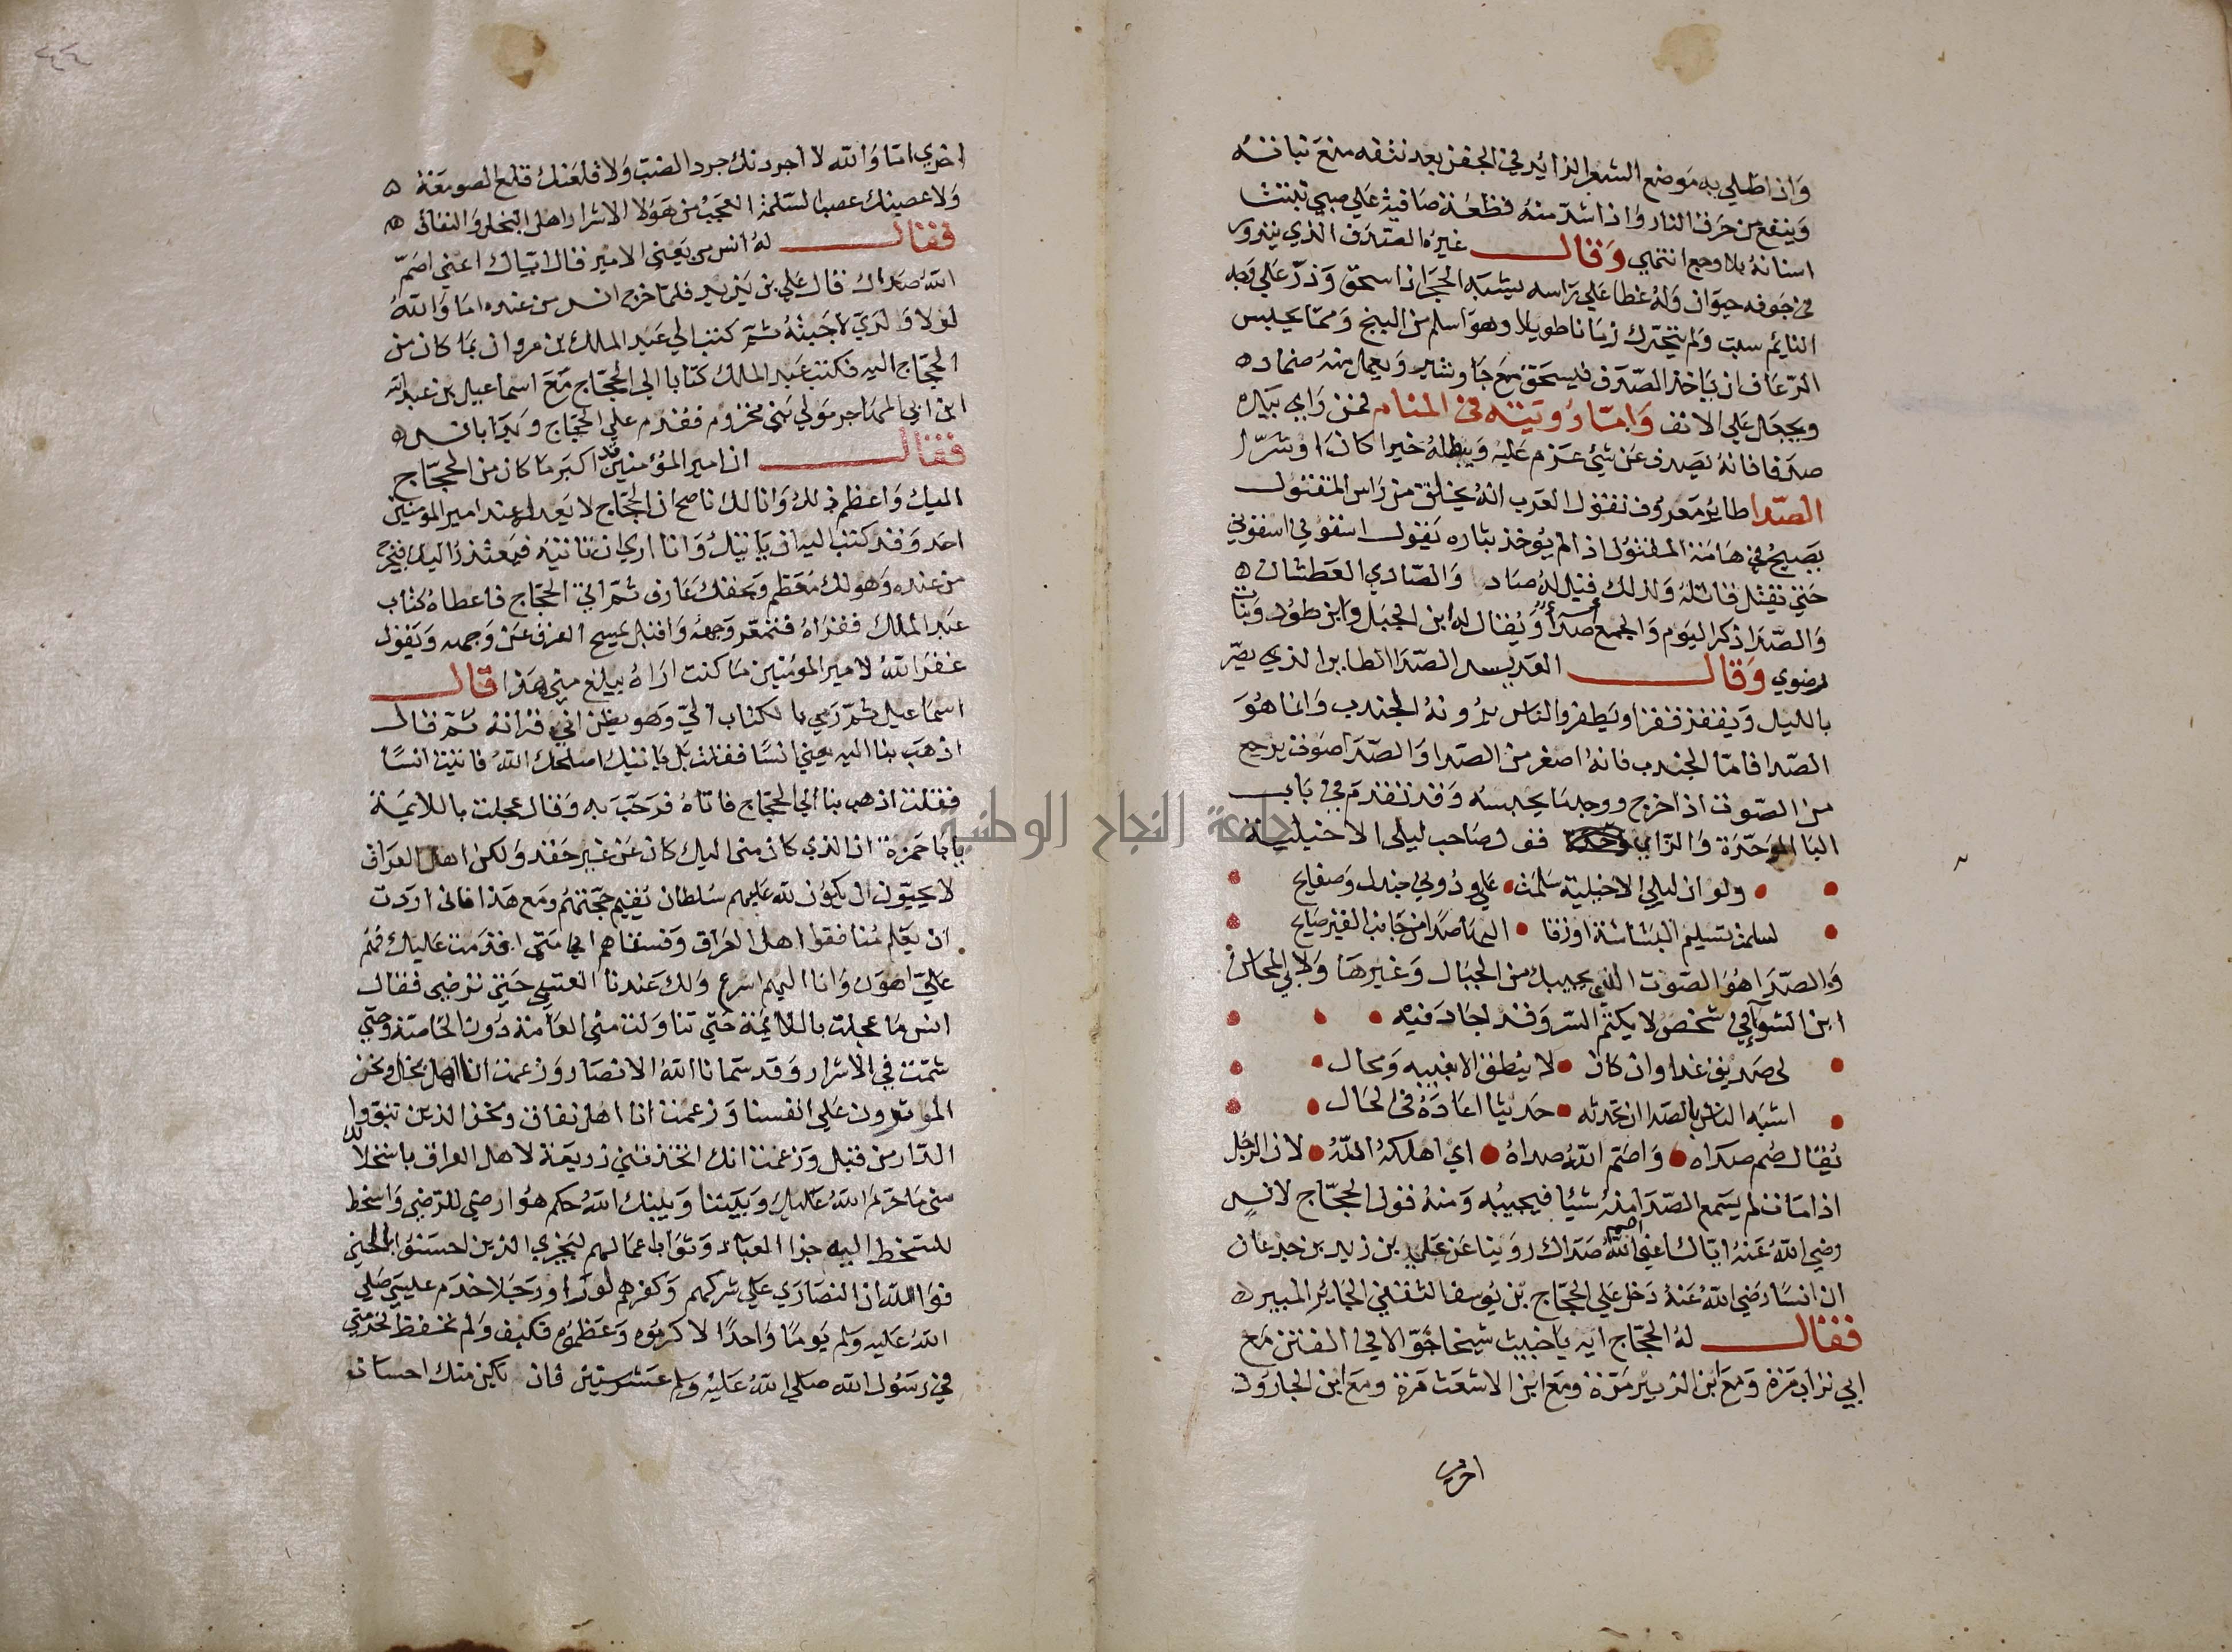 واذا طلي به موضع الشعر الزائد في الجفن بعد نتفه منع نباته
وينفع من حرق النار واذا شد منه قطعة صافية على صبي تنبتت
اسنانه بلا وجع انتهي وقال غيره الصدف الذي يدور
في جوفه حيوان وله غطا علي راسه يشبه الحجر اذا سحق وذر علي وجه
النايم سبت ولم يتحرك زمانا طويلا وهو اسلم من البنج ومما يحبس
الرعاف ان ياخذ الصدف فيسحق مع جاوشير ويعمل منه ضماد
ويجعل علي الانف واما رويته في المنام فمن راي بيده
صدفا فانه يصدف عن شيء عزم عليه ويبطله خيرا كان او شرا
الصدا طاير معروف تقول العرب انه يخلق من راس المقتول
يصيح في هامة المقتول اذا لم يوخذ بثاره يقول اسقوني اسقوني
حتي يقتل قاتله ولذلك قيل له صاد والصادي العطشان
والصدا ذكر البوم والجمع اصدا ويقال له ابن الجبل وابن طود وبنات
رضوي وقال العدبس الصدا الطاير الذي يصر
بالليل ويقفز قفزا ويطفر والناس يرونه الجندب وانما هو
الصدا فاما الجندب فانه اصغر من الصدا والصدا صوت يرجع
من الصوت اذا خرج ووجد ما يحبسه وقد تقدم في باب
البا الموحدة والزاي قول صاحب ليلي الاخيلية
ولو ان ليلي الاخيلية سلمت علي ودوني جندل وصفايح
لسلمت تسليم البشاشة او زقا اليها صدا من جانب القبر صايح
والصدا هو الصوت الذي يجيبك من الجبال وغيرها ولابي المحاسن
ابن الشوا في شخص لا يكتم السر وقد اجاد فيه
لي صديق غدا وان كان لا ينطق الا بغيبة ومحال
اشبه الناس بالصدا ان تحدثه حديثا اعاده في الحال
يقال صم صداه واصم الله صداه اي اهلكه الله لان الرجل
اذا مات لم يسمع الصدا منه شيئا فيجيبه ومنه قول الحجاج لانس
رضي الله عنه اياك اعني اصم الله صداك روينا عن علي بن زيد بن جدعان
ان انسا رضي الله عنه دخل علي الحجاج بن يوسف الثقفي الجاير المبير
فقال له الحجاج ايه يا خبيث شيخا جوالا في الفتن مع
ابي تراب مرة ومع ابن الزبير مرة ومع ابن الاشعث مرة ومع ابن الجارود
اخري
اخري اما والله لاجردنك جرد الضب ولاقلعنك قلع الصمغة
ولاعصبنك عصب السلمة العجب من هولا الاشرار اهل البخل والنفاق
فقال له انس من يعني الامير قال اياك اعني اصم
الله صداك قال علي بن يزيد فلما خرج انس من عنده اما والله
لولا ولدي لاجبته ثم كتب الي عبد الملك بن مروان بما كان من
الحجاج اليه فكتب عبد الملك كتابا الي الحجاج مع اسماعيل بن عبد الله
ابن ابي المهاجر مولي بني مخزوم فقدم علي الحجاج وبدا بانس
فقال ان امير المؤمنين قد اكبر ما كان من الحجاج
اليك واعظم ذلك وانا لك ناصح ان الحجاج لا يعدله عند امير المومنين
احد وقد كتب اليه ان ياتيك وانا اري ان تاتيه فيعتذر اليك فيخرج
من عنده وهو لك معظم وبحقك عارف ثم اتي الحجاج فاعطاه كتاب
عبد الملك فقراه فتمعر وجهه واقبل يمسح العرق عن وجهه ويقول
غفر الله لامير المومنين ما كنت اراه يبلغ مني هذا قال
اسماعيل ثم رمي بالكتاب الي وهو يظن اني قراته ثم قال
اذهب بنا اليه يعني انسا فقلت بل ياتيك اصلحك الله فاتيت انسا
فقلت اذهب بنا الي الحجاج فاتاه فرحب به وقال عجلت باللايمة
يابا حمزة ان الذي كان مني اليك كان عن غير حقد ولكن اهل العراق
لا يحبون ان يكون لله عليهم سلطان يقيم حجتهم ومع هذا فاني اردت
ان يعلم منافقوا اهل العراق وفساقهم اني متي اقدمت عليك فهم
علي اهون وانا اليهم اسرع ولك عندنا العتبي حتي ترضي فقال
انس ما عجلت باللائمة حتي تناولت مني العامة دون الخاصة وحتي
شمت في الاشرار وقد سمانا الله الانصار وزعمت انا اهل بخل ونحن
الموثرون علي انفسنا وزعمت انا اهل نفاق ونحن الذين تبوءوا
الدار من قبل وزعمت انك اتخذتني ذريعة لاهل العراق باستحلالك
مني ما حرم الله عليك وبيننا وبينك الله حكم هو ارضي للرضي واسخط
للسخط اليه جزا العباد وثواب اعمالهم ليجزي الذين احسنوا بالحسني
فوالله ان النصاري علي شركهم وكفرهم لو راوا رجلا خدم عيسي صلي
الله عليه وسلم يوما واحدا لاكرموه وعظموه فكيف ولم تحفظ لي خدمتي
في رسول الله صلي الله عليه وسلم عشر سنين فان يكن منك احسان
جامعة النجاح الوطنية